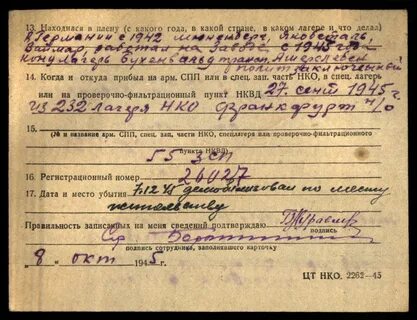 13. Находился в плену (с какого года, в какой стране, в каком лагере и что делал)
В Германии с 1942
Ваймар, работал на заводе, с 1945 года
концлагерь Бухенвальд Ашерслебен
политзаключенный
14. Когда и откуда прибыл на арм. СПП, в спец. зап. часть НКО, в спец. лагерь
или на проверочно-фильтрационный пункт НКВД 27 сент 1945 г
из 232 лагеря НКО Франкфурт н/о
15.
(№ и название арм. СПП, спец. зап. части НКО, спецлагеря или проверочно-фильтрационного
пункта НКВД)
55 ЗСП
16. Регистрационный номер 26027
17. Дата и место убытия 7.12.45 демобилизован по месту
жительства
Правильность записанных на меня сведений подтверждаю
подпись
подпись сотрудника, заполнявшего карточку
"8" окт 1945 г.
ЦТ НКО. 2262—45